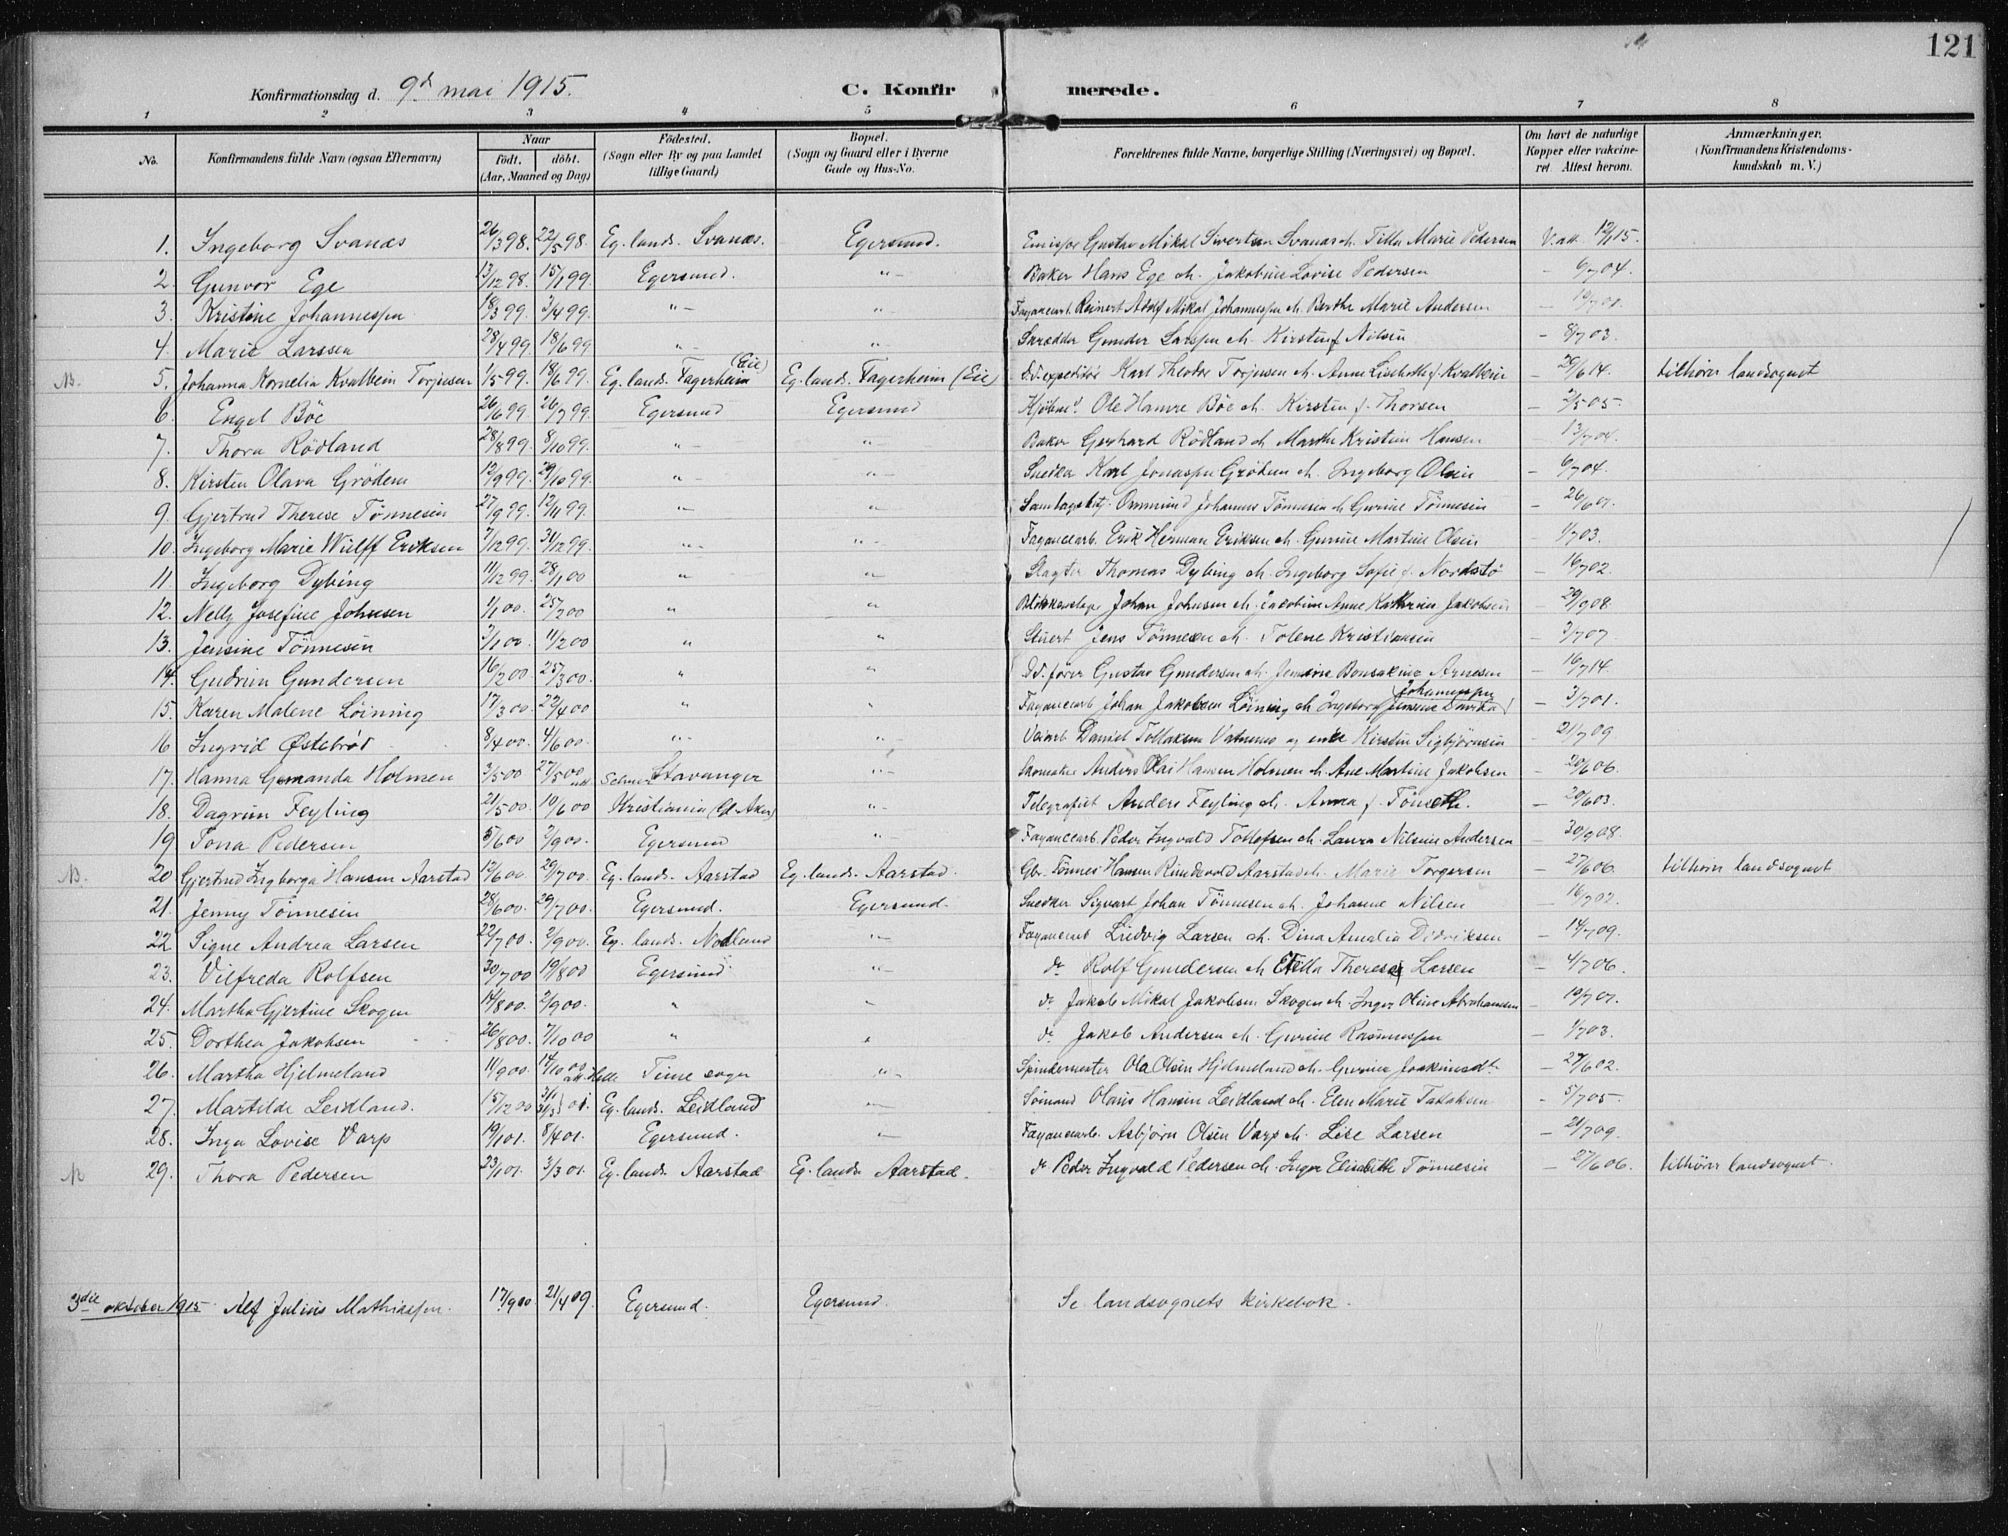 121
Konfirmationsdag d. 9d mai 1915. C. Konfir merede.
1 2 3 4 5 6 7 8
No. Konfirmandens fulde Navn (ogsaa Efternavn) Naar født. døbt. (Aar, Maaned og Dag) Fødested. (Sogn eller By og paa Landet tillige Gaard) Bopæl. (Sogn og Gaard eller i Byerne Gade og Hus-No. Forældrenes fulde Navne, borgerlige Stilling (Næringsvei) og Bopæl. Om havt de naturlige Kopper eller vakcineret. Attest herom. Anmærkninger. (Konfirmandens Kristendomskundskab m. V.)
1. Ingeborg Svanæs 26/3 98. 22/5 98. Eg. lands. Svanæs. Egersund. Gustav Mikal Sivertsen Svanæs Marie Pedersen V. att. 12/1 15.
2. Gunvor Ege 13/12 98. 15/1 99. Egersund. "— Baker Hans Ege & Jakobine Lovise Pedersen — 6/7 04.
3. Kristine Johannessen 18/3 99. 3/4 99. "— "— Fayancearb. Reinert Adolf Mikal Johannessen & Berthe Marie Andersen
4. Marie Larssen 28/4 99 18/6 99 "— "— Skrædder Gunder Larssen & Kirsten f. Nilsen — 8/7 03.
N. 5. Johanna Kornelia Kvalbein Torjusen 1/5 99. 18/6 99. Eg. lands. Fagerheim (Eie) Eg. lands. Fagerheim (Eie) Karl Theodor Torjusen & Anne f. Kvalbein — 29/6 14. tilhører landsognet
6. Engel Böe 26/6 99. 26/7 99. Egersund Egersund Kjøbm. Ole Hamre Böe & Kirsten f. Thorsen — 2/5 05.
7. Thora Rödland 28/8 99. 8/10 99. "— "— Baker Gerhard Rödland & Marthe Kristine Hansen — 13/7 04.
8. Kirsten Olava Grödem 12/9 99. 29/10 99. "— "— Snedker Karl Jonassen Grödem & Ingeborg Olsen — 6/7 04.
9. Gjertrud Therese Tönnesen 27/9 99. 12/11 99. "— "— Johannes Tönnesen & Gurine Tönnesen — 26/6 07.
10. Ingeborg Marie Wulff Eriksen 7/12 99. 31/12 99. "— "— Fayancearb. Erik Herman Eriksen & Gurine Martine Olsen — 1/7 03.
11. Ingeborg Dybing 11/12 99. 28/1 00 " "— Slagter Thomas Dybing & Ingeborg Sofie f. Nordstø — 16/7 02.
12. Nelly Josefine Johnsen 1/1 00. 25/2 00 " " Johan Johnsen & Jakobine Anne Kathrine Jakobsen — 29/9 08.
13. Jensine Tönnesen 2/1 00. 11/2 00 " " Stuert Jens Tönnesen & Tolene Kristiansen — 2/7 07.
14. Gudrun Gundersen 16/2 00 25/3 00. " " Gustav Gundersen & Arnesen — 16/7 14.
15. Karen Malene Löining 17/3 00. 22/4 00 " " Fayancearb. Johan Jakobsen Löining & Ingeborg Jensine Johannessen — 3/7 01.
16 Ingrid Østebrød 8/4 00. 4/6 00. "— "— Veiarb. Daniel Tollaksen Kirsten Sigbjörnsen — 21/7 09
17. Hanna Holmen 3/5 00 27/5 00 Stavanger "— Skomaker Anders Olai Hansen Holmen & Ane Martine Jakobsen — 20/6 06.
18. Dagrun Feyling 21/5 00. 10/6 00 Kristiania (Gl. Aker) "— Telegrafist Anders Feyling & Anna f. Tönseth. — 20/6 03.
19 Tona Pedersen 5/6 00 2/9 00. Egersund "— Fayancearb. Peder Ingvald Tollefsen & Laura Nilsine Andersen — 30/9 08.
N. 20 Gjertrud Ingeborga Hansen Aarstad 12/6 00. 29/7 00. Eg. lands. Aarstad Eg. lands. Aarstad. Gbr. Tönnes Hansen Aarstad & Marie Torgersen — 27/6 06. tilhører landsognet
21. Jenny Tönnesen 28/6 00. 29/7 00. Egersund. Egersund. Snedker Sigvart Johan Tönnesen & Johanne Nilsen — 16/7 02.
22 Signe Andrea Larsen 22/7 00. 2/9 00. Eg. lands. Nodland "— Fayancearb Ludvig Larsen & Dina Amalia Didriksen — 14/7 09.
23. Vilfreda Rolfsen 30/7 00 19/8 00 Egersund. "— do Rolf Gundersen & Therese Larsen — 4/7 06.
24. Martha Gjertine Skogen 14/8 00. 2/9 00. " "— do Jakob Mikal Jakobsen Skogen & Inger Oline Abrahamsen — 19/7 07.
25. Dorthea Jakobsen 26/8 00. 7/10 00 " " do Jakob Andersen & Gurine Rasmussen — 1/7 03.
26. Martha Hjelmeland 11/9 00. 14/10 00 Time sogn "— Ole Olsen Hjelmeland & Gurine — 27/6 02.
27. Martilde Leidland. 15/12 00 Eg. lands. Leidland "— Sömand Olaus Hansen Leidland & Elen Marie — 5/7 05.
28. Inga Lovise Varp 19/1 01. 8/4 01. Egersund. "— Fayancearb. Asbjörn Olsen Varp & Lise Larsen — 21/7 09.
N 29. Thora Pedersen 23/1 01. 3/3 01. Eg. lands Aarstad Eg. lands Aarstad. do Peder Ingvald Pedersen & Inger Elisabeth Tönnesen — 27/6 06. tilhörer landsognet.
3die oktober 1915 Alf Julius Mathiassen. 17/9 00 21/4 09. Egersund. Egersund. Se landsognets kirkebok.